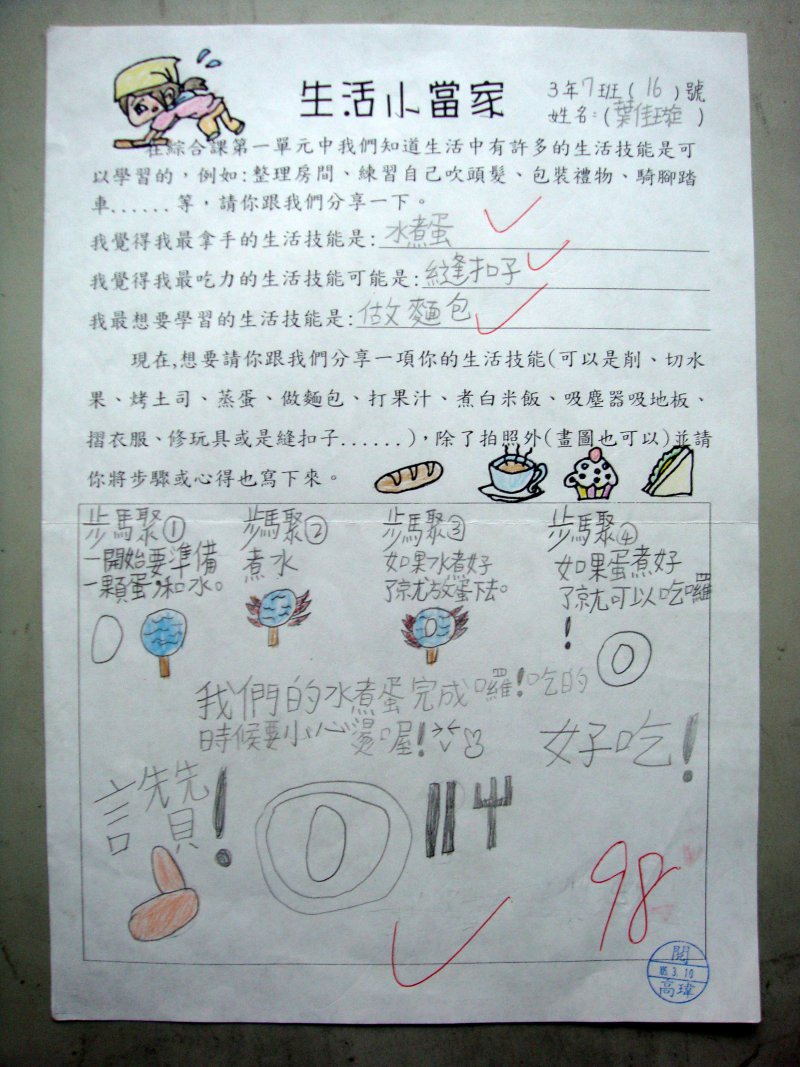 生活小當家
3年7班(16)號
姓名:(葉佳璇)
在綜合課第一單元中我們知道生活中有許多的生活技能是可
以學習的,例如:整理房間、練習自己吹頭髮、包裝禮物、騎腳踏
車......等,請你跟我們分享一下。
我覺得我最拿手的生活技能是:水煮蛋
我覺得我最吃力的生活技能可能是:縫扣子
我最想要學習的生活技能是:做麵包
現在,想要請你跟我們分享一項你的生活技能(可以是削、切水
果、烤土司、蒸蛋、做麵包、打果汁、煮白米飯、吸塵器吸地板、
摺衣服、修玩具或是縫扣子......),除了拍照外(畫圖也可以)並請
你將步驟或心得也寫下來。
步驟①
一開始要準備
一顆蛋,和水。
步驟②
煮水
步驟③
如果水煮好
了就放蛋下去。
步驟④
如果蛋煮好
了就可以吃囉
!
我們的水煮蛋完成囉!吃的
時候要小心燙喔!
好吃!
讚!
98
閱
3.10
高瑋